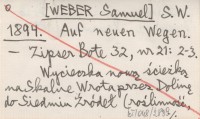 [WEBER Samuel] S.W.
1894. Auf neuen Wegen.
– Zipser Bote 32, nr 21: 2-3.
Wycieczka nową ścieżką
na Skalne Wrota przez Dolinę
do Siedmiu Źródeł (roślinność,